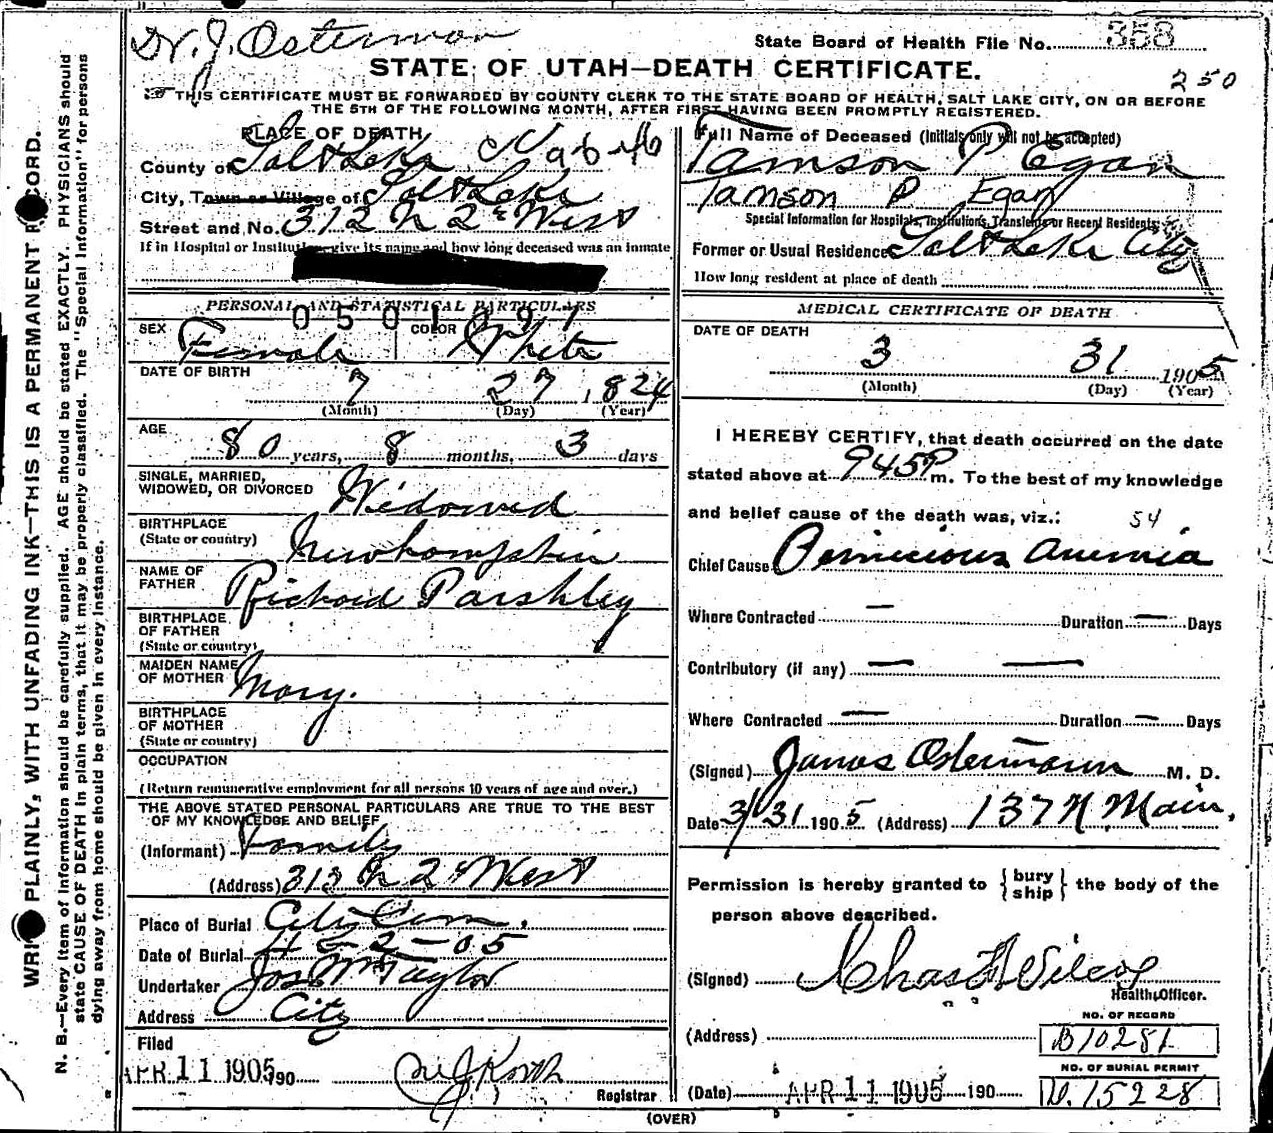 Dr. J. Osterman
State Board of Health File No. 358
250
STATE OF UTAH—DEATH CERTIFICATE.
THIS CERTIFICATE MUST BE FORWARDED BY COUNTY CLERK TO THE STATE BOARD OF HEALTH, SALT LAKE CITY, ON OR BEFORE
THE 5TH OF THE FOLLOWING MONTH, AFTER FIRST HAVING BEEN PROMPTLY REGISTERED.
PLACE OF DEATH
County of Salt Lake
City, Town or Village of Salt Lake
Street and No. 312 N 2d West
If in Hospital or Institution give its name and how long deceased was an inmate
PERSONAL AND STATISTICAL PARTICULARS
0501891
SEX Female COLOR White
DATE OF BIRTH
7 27 1824
(Month) (Day) (Year)
AGE
80 years, 8 months, 3 days
SINGLE, MARRIED,
WIDOWED, OR DIVORCED Widowed
BIRTHPLACE
(State or country) Newhampshire
NAME OF
FATHER Richard Parshley
BIRTHPLACE
OF FATHER
(State or country)
MAIDEN NAME
OF MOTHER Mary.
BIRTHPLACE
OF MOTHER
(State or country)
OCCUPATION
(Return remunerative employment for all persons 10 years of age and over.)
THE ABOVE STATED PERSONAL PARTICULARS ARE TRUE TO THE BEST
OF MY KNOWLEDGE AND BELIEF
(Informant) Family
(Address) 312 N 2d West
Place of Burial City Cem.
Date of Burial 4-2-05
Undertaker Jos Wm Taylor
Address City
Filed
APR 11 1905 190
Registrar
Full Name of Deceased (Initials only will not be accepted)
Tamson P Egan
Tamson P Egan
Special Information for Hospitals, Institutions, Transients or Recent Residents
Former or Usual Residence Salt Lake City
How long resident at place of death
MEDICAL CERTIFICATE OF DEATH
DATE OF DEATH
3 31 1905
(Month) (Day) (Year)
I HEREBY CERTIFY, that death occurred on the date
stated above at 945 P m. To the best of my knowledge
and belief cause of the death was, viz.: 54
Chief Cause Pernicious Anemia
Where Contracted — Duration — Days
Contributory (if any) — —
Where Contracted — Duration — Days
(Signed) James Ostermann M. D.
Date 3/31 1905 (Address) 137 N Main.
Permission is hereby granted to {bury ship} the body of the
person above described.
(Signed) Chas F Wilcox
Health Officer.
NO. OF RECORD
(Address) B10281
NO. OF BURIAL PERMIT
(Date) APR 11 1905 190 D. 15228
(OVER)
WRITE PLAINLY, WITH UNFADING INK—THIS IS A PERMANENT RECORD.
N. B.—Every item of information should be carefully supplied. AGE should be stated EXACTLY. PHYSICIANS should
state CAUSE OF DEATH in plain terms, that it may be properly classified. The "Special Information" for persons
dying away from home should be given in every instance.